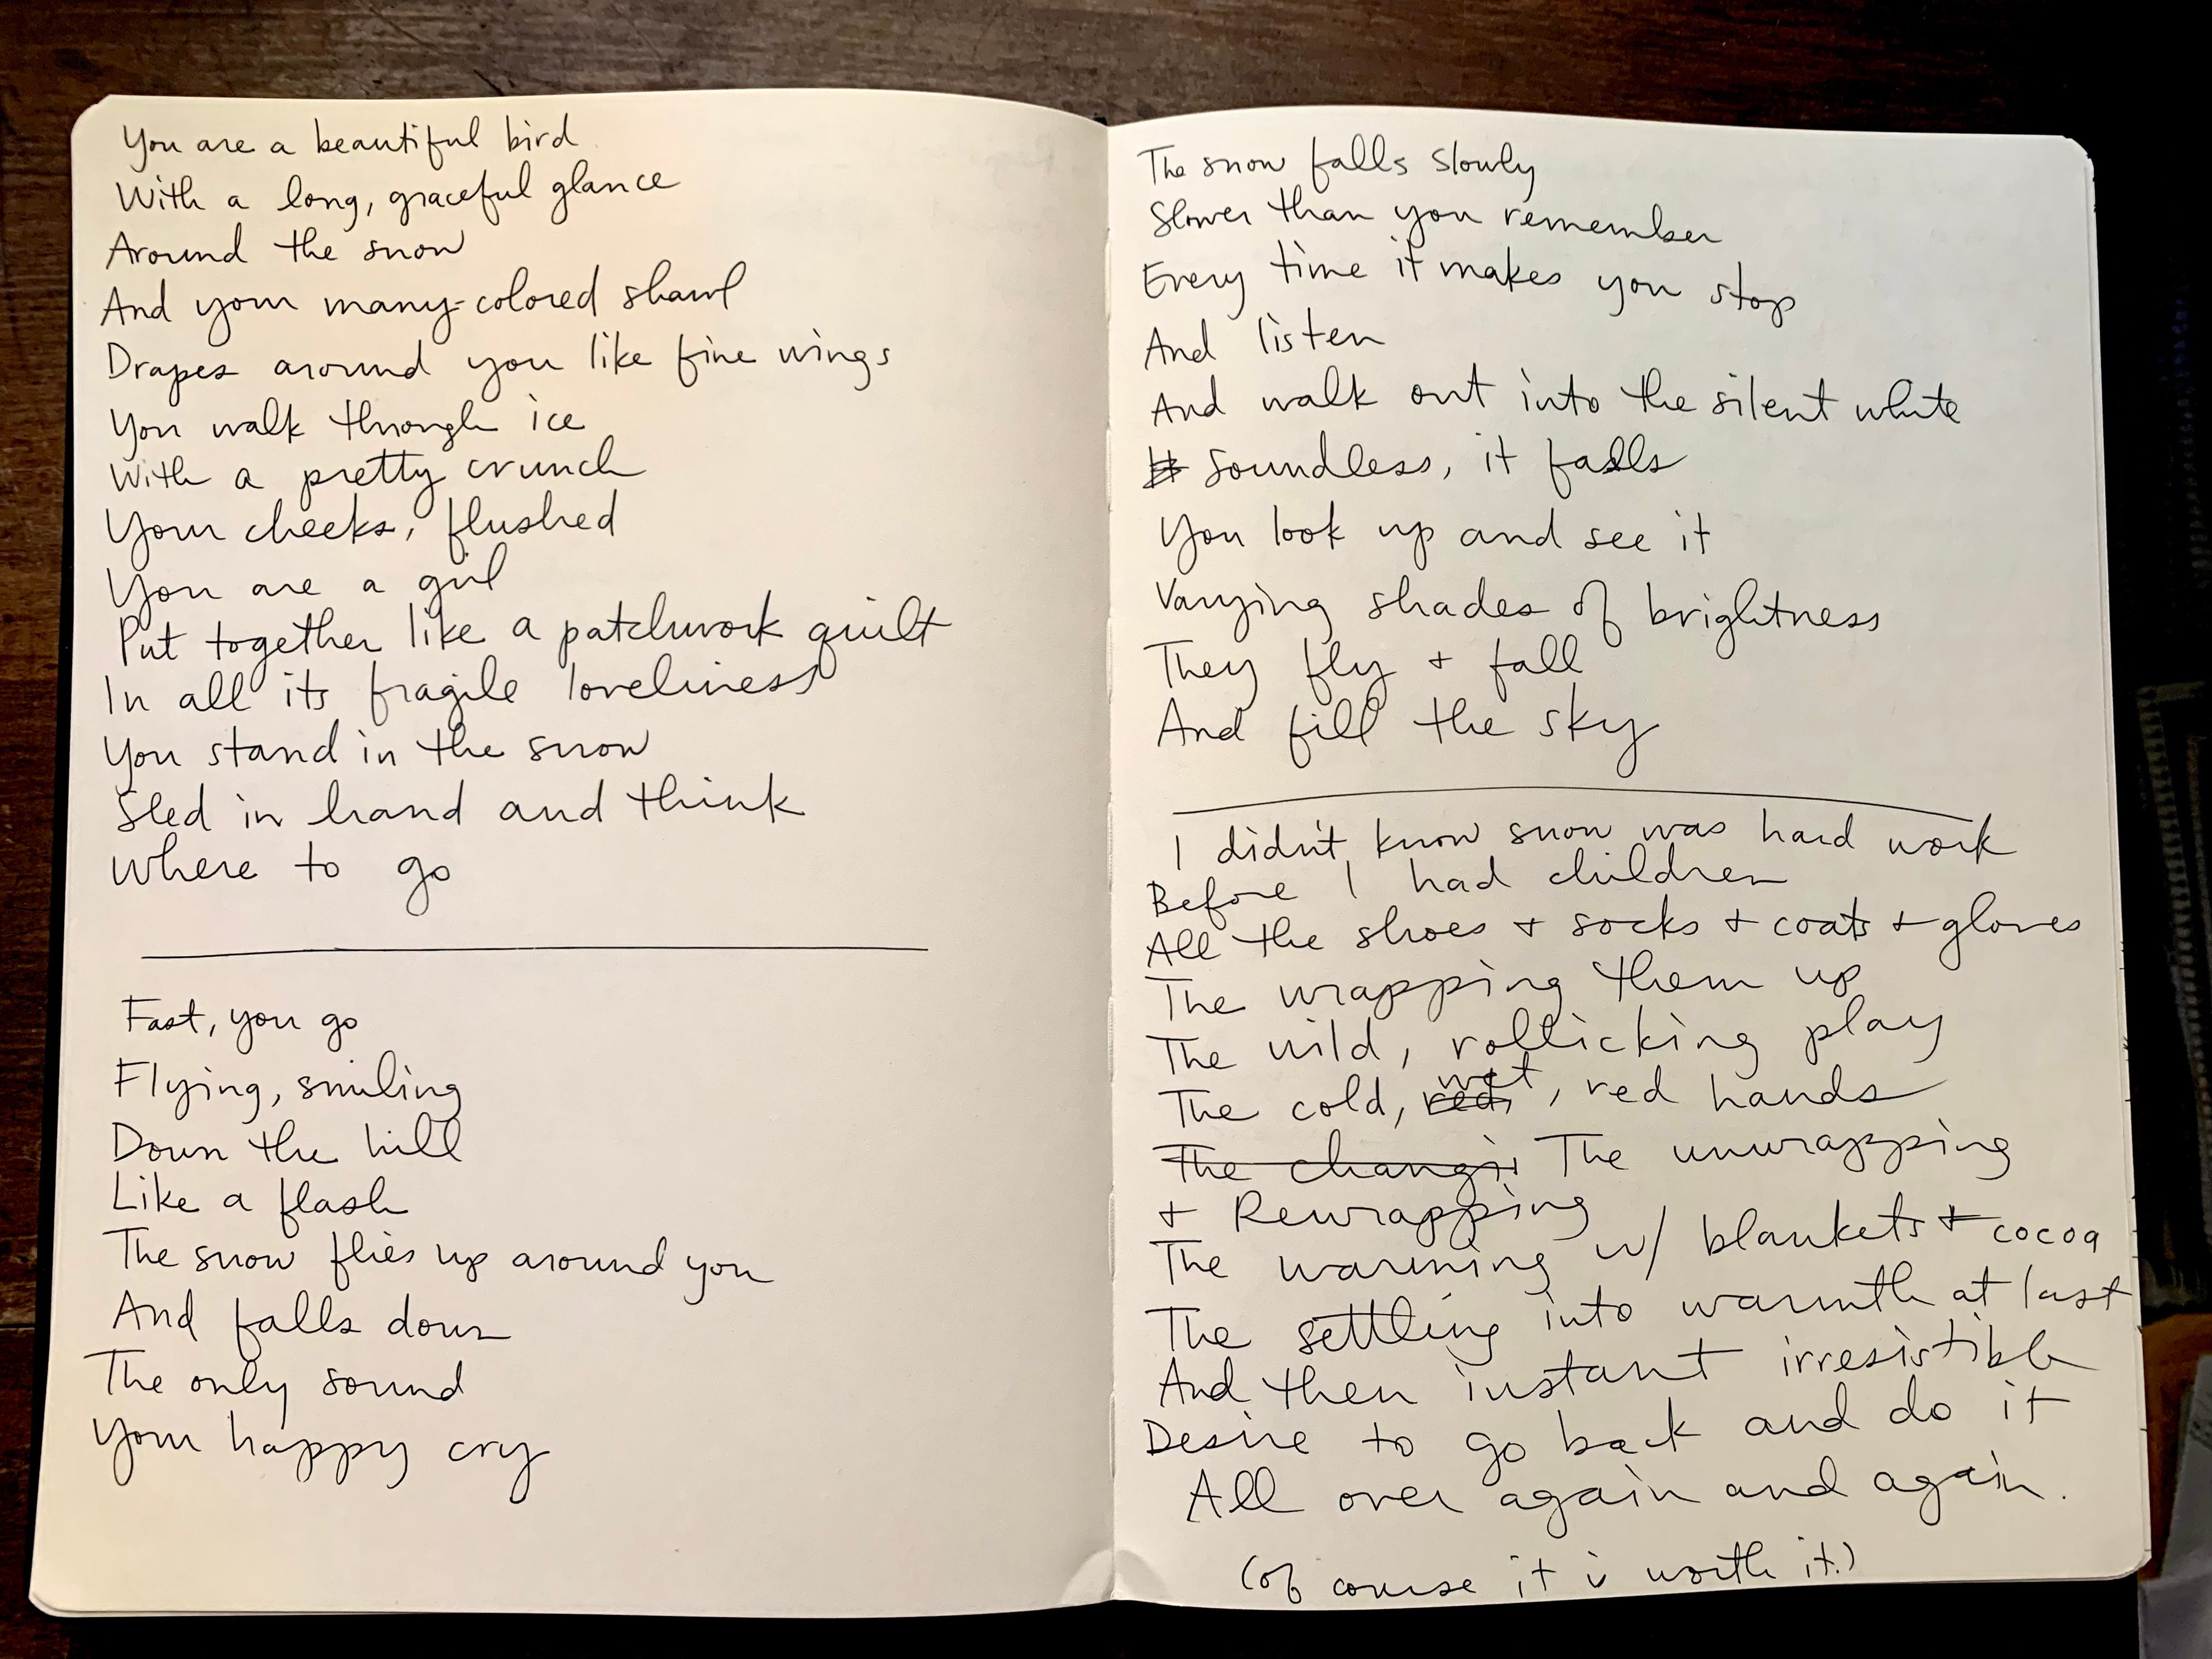 You are a beautiful bird
With a long, graceful glance
Around the snow
And your many-colored shawl
Drapes around you like fine wings
You walk through ice
With a pretty crunch
Your cheeks, flushed
You are a girl
Put together like a patchwork quilt
In all its fragile loveliness
You stand in the snow
Sled in hand and think
Where to go
Fast, you go
Flying, smiling
Down the hill
Like a flash
The snow flies up around you
And falls down
The only sound
Your happy cry
The snow falls slowly
Slower than you remember
Every time it makes you stop
And listen
And walk out into the silent white
Soundless, it falls
You look up and see it
Varying shades of brightness
They fly + fall
And fill the sky
I didn't know snow was hard work
Before I had children
All the shoes + socks + coats + gloves
The wrapping them up
The wild, rollicking play
The cold, red, wet, red hands
The changi The unwrapping
+ Rewrapping
The warming w/ blankets + cocoa
The settling into warmth at last
And then instant irresistible
Desire to go back and do it
All over again and again.
(of course it is worth it!)